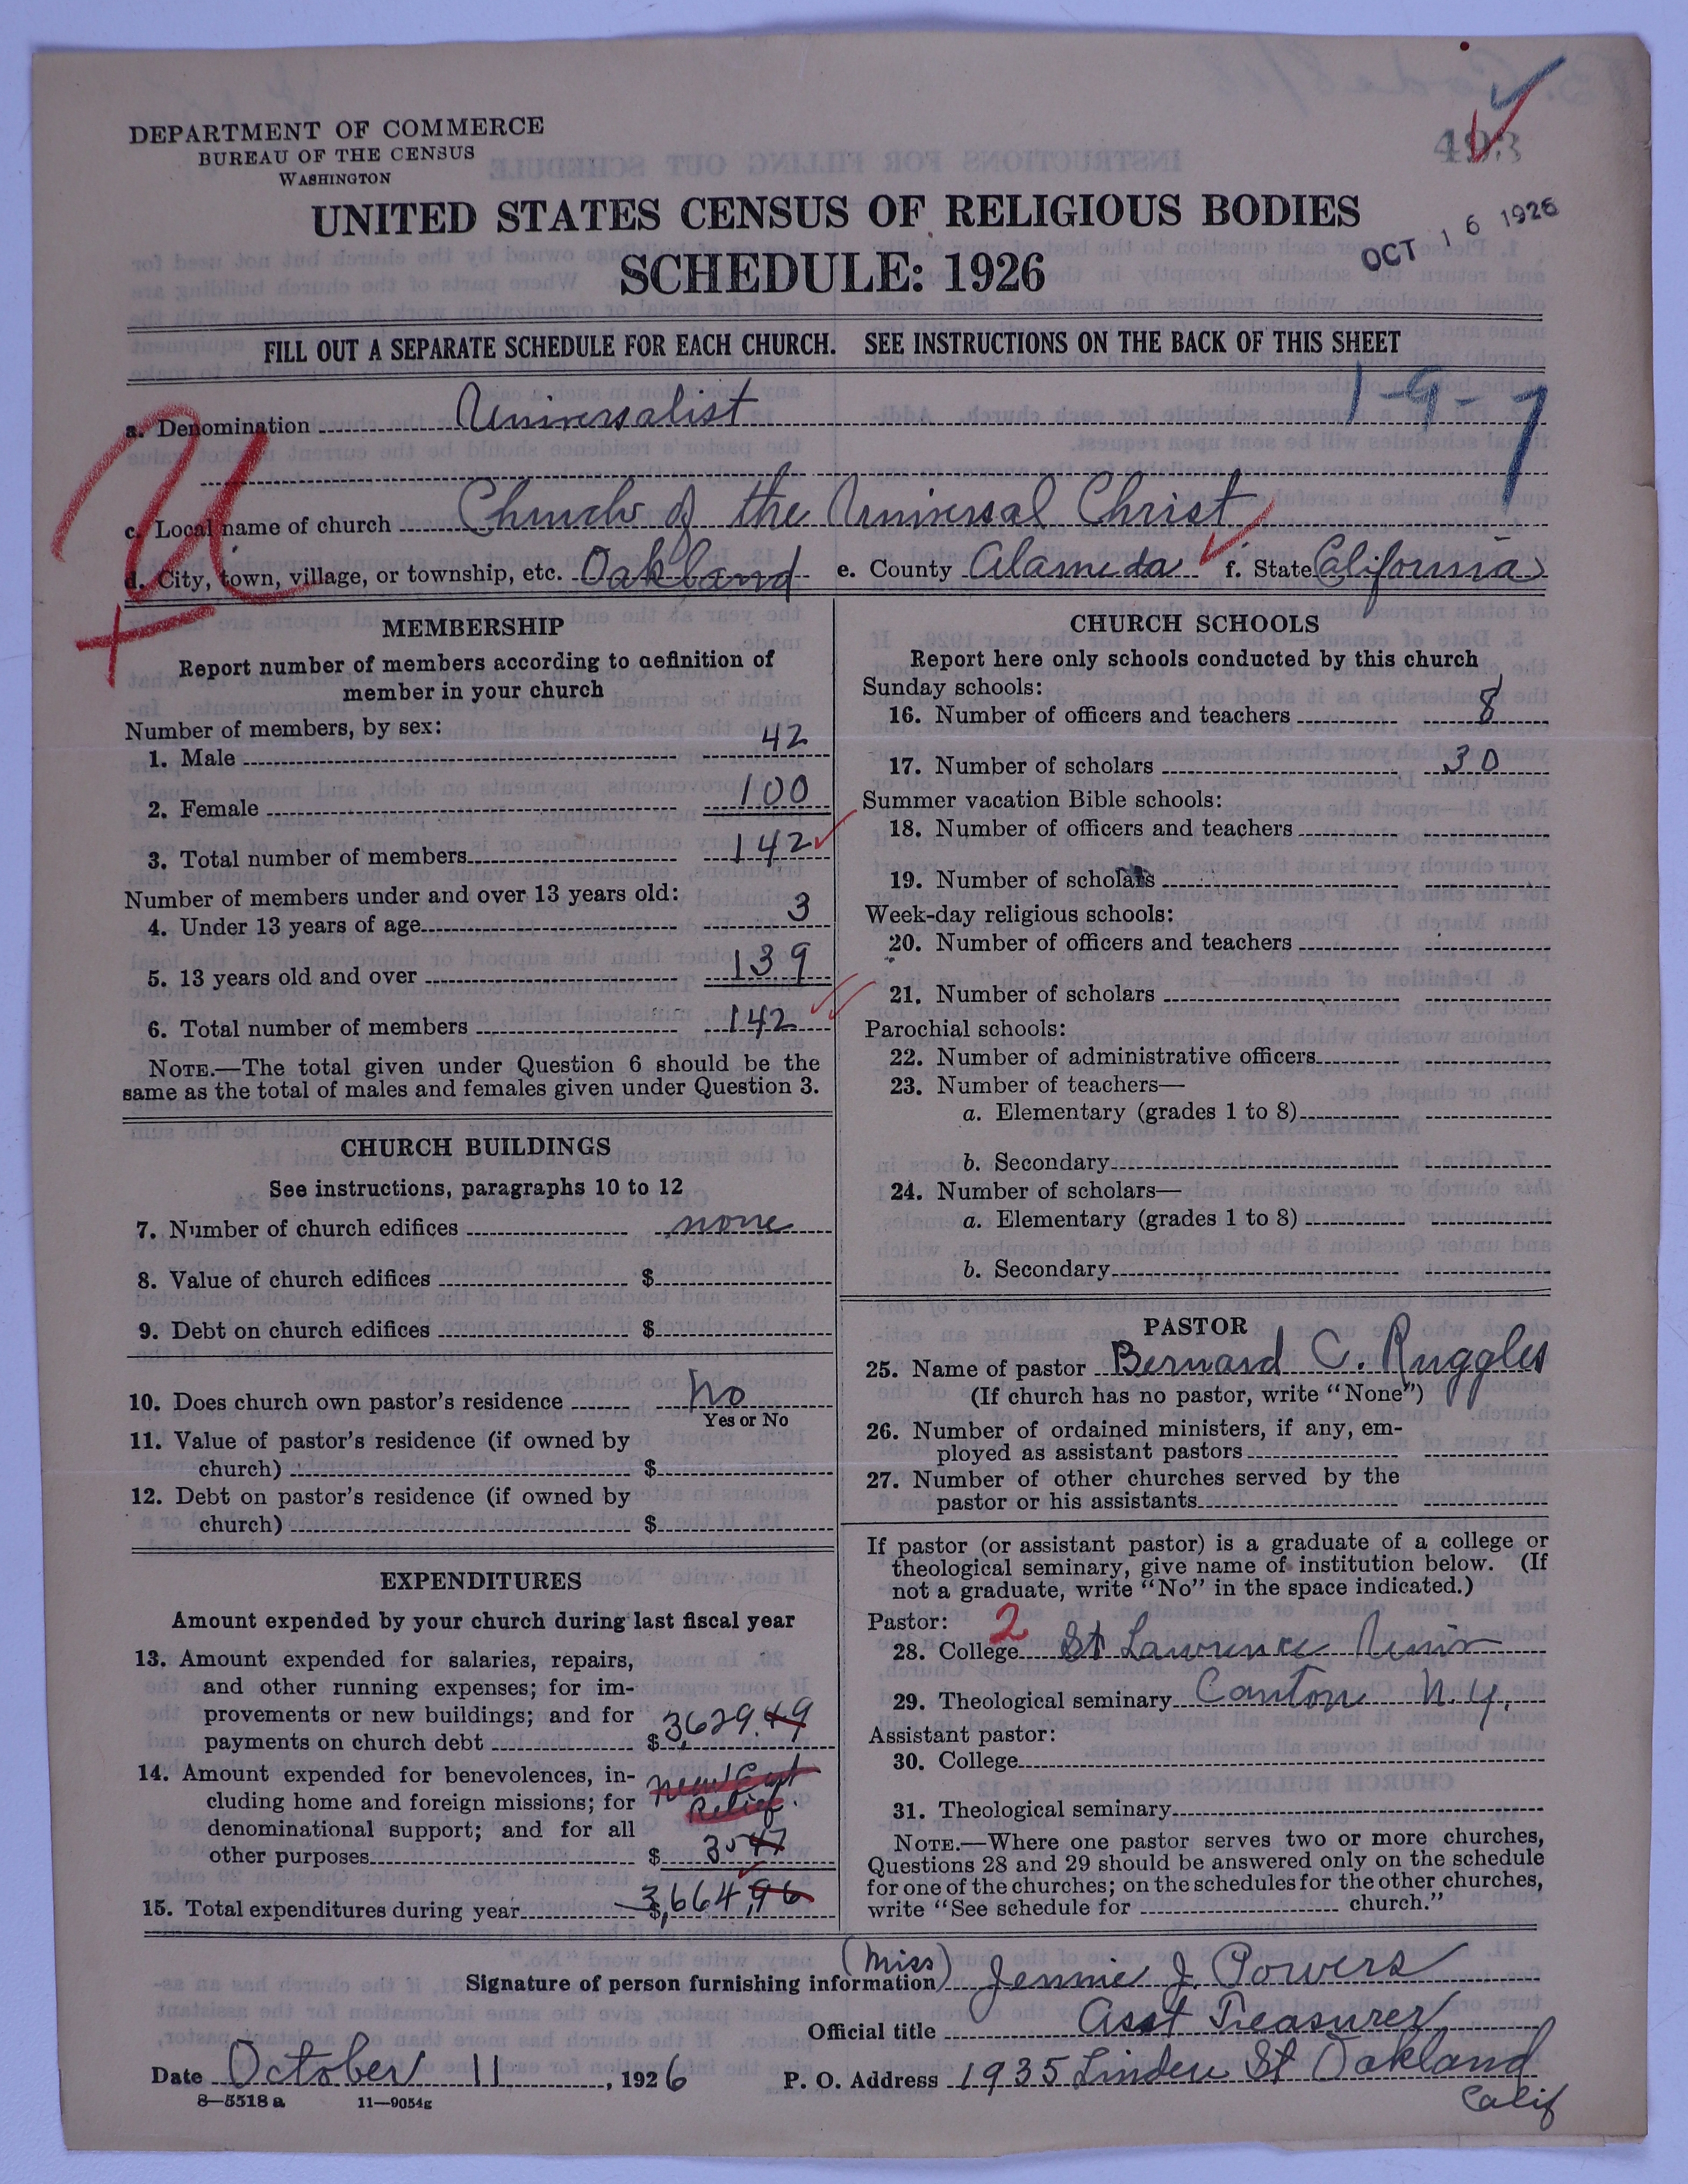 DEPARTMENT OF COMMERCE
BUREAU OF THE CENSUS
WASHINGTON
UNITED STATES CENSUS OF RELIGIOUS BODIES
SCHEDULE: 1926
OCT 16 1926
FILL OUT A SEPARATE SCHEDULE FOR EACH CHURCH. SEE INSTRUCTIONS ON THE BACK OF THIS SHEET
1-9-7
a. Denomination Universalist
U
c. Local name of church Church of the Universal Christ
d. City, town, village, or township, etc. Oakland e. County Alameda f. State California
MEMBERSHIP
Report number of members according to definition of
member in your church
Number of members, by sex:
1. Male 42
2. Female 100
3. Total number of members 142
Number of members under and over 13 years old:
4. Under 13 years of age 3
5. 13 years old and over 139
6. Total number of members 142
NOTE.—The total given under Question 6 should be the
same as the total of males and females given under Question 3.
CHURCH BUILDINGS
See instructions, paragraphs 10 to 12
7. Number of church edifices none
8. Value of church edifices $
9. Debt on church edifices $
10. Does church own pastor's residence No
Yes or No
11. Value of pastor's residence (if owned by
church) $
12. Debt on pastor's residence (if owned by
church) $
EXPENDITURES
Amount expended by your church during last fiscal year
13. Amount expended for salaries, repairs,
and other running expenses; for im-
provements or new buildings; and for
payments on church debt $ 3,629.49
14. Amount expended for benevolences, in-
cluding home and foreign missions; for
denominational support; and for all
other purposes $ Near East
Relief.
35 47
15. Total expenditures during year $ 3,664,96
CHURCH SCHOOLS
Report here only schools conducted by this church
Sunday schools:
16. Number of officers and teachers 8
17. Number of scholars 30
Summer vacation Bible schools:
18. Number of officers and teachers
19. Number of scholars
Week-day religious schools:
20. Number of officers and teachers
21. Number of scholars
Parochial schools:
22. Number of administrative officers
23. Number of teachers—
a. Elementary (grades 1 to 8)
b. Secondary
24. Number of scholars—
a. Elementary (grades 1 to 8)
b. Secondary
PASTOR
25. Name of pastor Bernard C. Ruggles
(If church has no pastor, write "None")
26. Number of ordained ministers, if any, em-
ployed as assistant pastors
27. Number of other churches served by the
pastor or his assistants
If pastor (or assistant pastor) is a graduate of a college or
theological seminary, give name of institution below. (If
not a graduate, write "No" in the space indicated.)
Pastor: 2
28. College St Lawrence Univ
29. Theological seminary Canton N.Y.
Assistant pastor:
30. College
31. Theological seminary
NOTE.—Where one pastor serves two or more churches,
Questions 28 and 29 should be answered only on the schedule
for one of the churches; on the schedules for the other churches,
write "See schedule for church."
Signature of person furnishing information (Miss) Jennie J. Powers
Official title Asst Treasurer
Date October 11, 1926 P. O. Address 1935 Linden St Oakland
Calif
8—5518 a 11—9054g